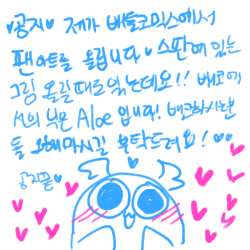 ♥공지♥ 제가 배틀코믹스에서
팬아트를 올립니다♥스판에 있는
그림 올릴때도있는데요!! 배코에
서의 닉은 Aloe 입니다! 배코하시는분
들 오해마시길 부탁드려요! ♡♡
공지끝♥